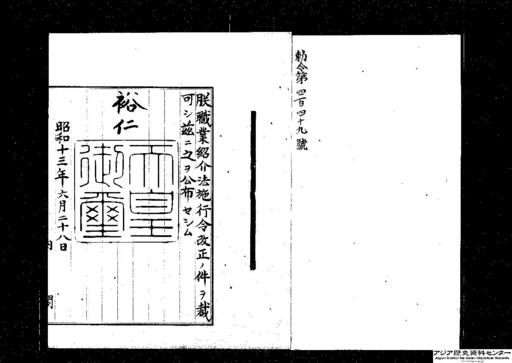 勅令第四百四十九號
朕職業紹介法施行令改正ノ件ヲ裁
可シ茲ニ之ヲ公布セシム
裕仁
天皇
御璽
昭和十三年六月二十八日
内閣
アジア歴史資料センター
Japan Center for Asian Historical Records